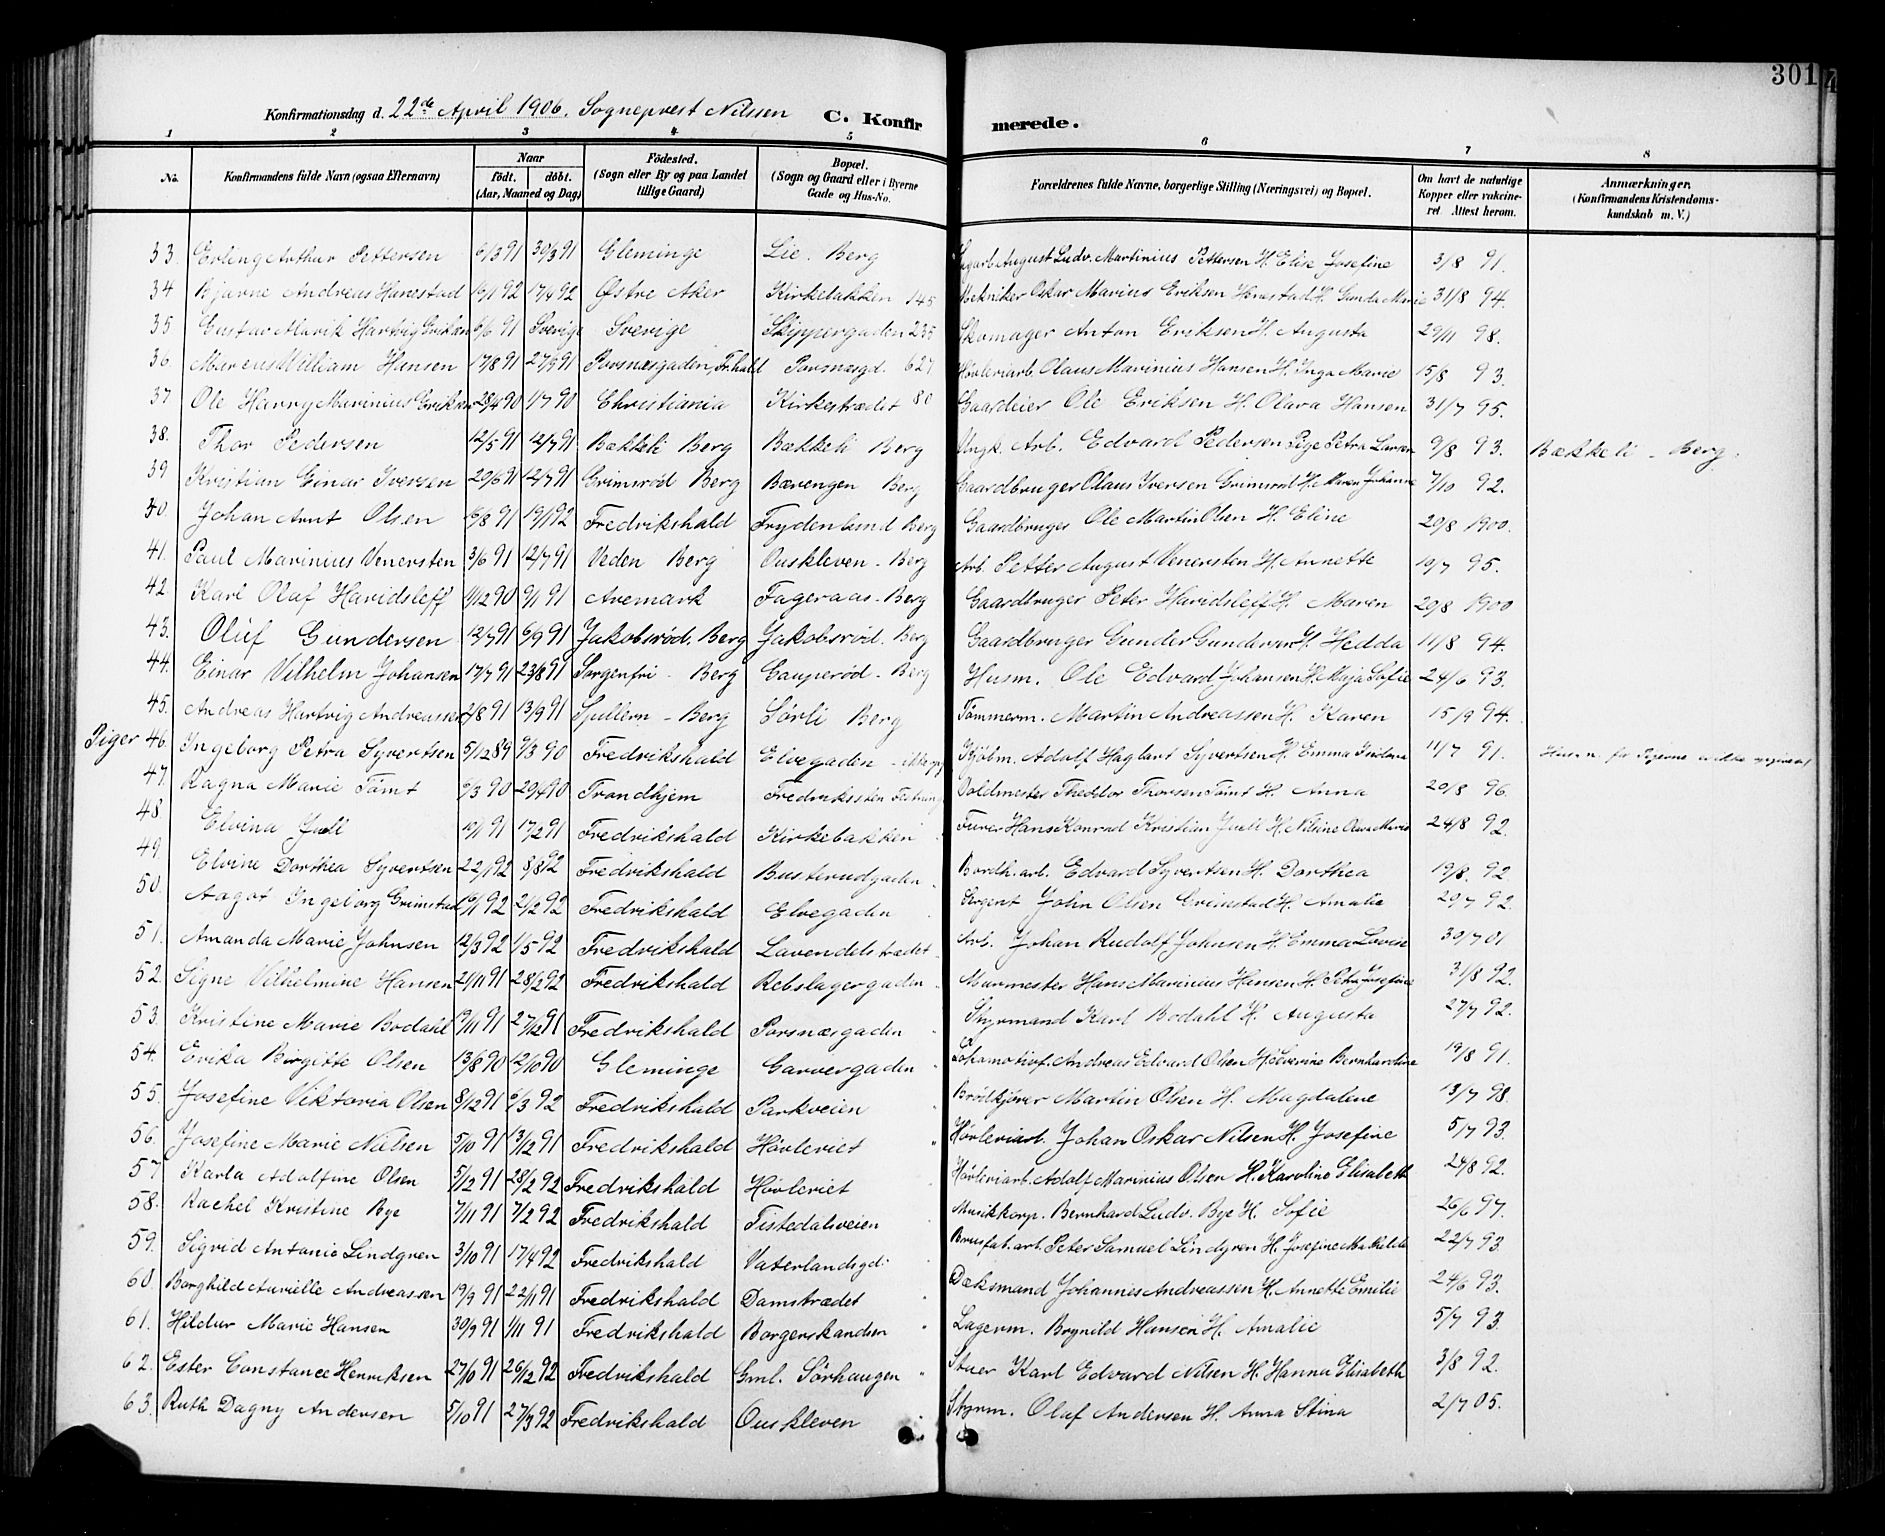 301
Konfirmationsdag d. 22de April 1906. Sogneprest Nilssen C. Konfirmerede.
1 2 3 4 5 6 7 8
No. Konfirmandens fulde Navn (ogsaa Efternavn) Naar født. døbt. (Aar, Maaned og Dag) Födested. (Sogn eller By og paa Landet tillige Gaard) Bopæl. (Sogn og Gaard eller i Byerne Gade og Hus-No. Forældrenes fulde Navne, borgerlige Stilling (Næringsvei) og Bopæl. Om havt de naturlige Kopper eller vakcineret Attest herom. Anmærkninger. (Konfirmandens Kristendomskundskab m. V.)
33. Erling Arthur Pettersen 6/3 91 30/3 91 Gleminge Lie. Berg August Ludv. Martinius Pettersen H. Elise Josefine 3/8 91.
34 Bjarne Andreas Hanestad 19/1 92 17/4 92 Østre Aker Kirkebakken 145 Mekniker Oskar Marius Eriksen H. Gunda Marie 31/8 94.
35 Gustav Alarik Hartvig Eriksen 6/6 91 Sverige Sverige Skippergaden 235 Skomager Anton Eriksen H. Augusta 29/11 98.
36. Marens William Hansen 17/8 91 27/9 91 Porsnæsgaden, Fr.hald Porsnæsgd. 627 Høvleriarb. Olaus Marinius Hansen H. Inga Marie 15/8 93.
37 Ole Harry Marinius Eriksen 28/4 90 1/7 90 Christiania Kirkestrædet 80 Gaardeier Ole Eriksen H. Olava Hansen 31/7 95.
38. Thor Pedersen 12/5 91 12/7 91 Bækkeli Berg Bækkeli Berg Ungk. Arb. Edvard Pedersen Pige Petra Larsen 9/8 93. Bækkeli - Berg.
39 Kristian Einar Iversen 29/6 91 12/7 91 Grimsrød Berg Bævengen Berg Gaardbruger Olaus Iversen Grimsrød H. Maren Johanne 7/10 92.
40. Johan Arnt Olsen 16/8 91 19/1 92 Fredrikshald Frydenlund Berg Gaardbruger Ole Martin Olsen H. Eline 29/8 1900.
41. Paul Marinius Venersten 3/6 91 12/7 91 Veden Berg Ouskleven - Berg Arb. Petter August Venersten H. Annette 19/7 95.
42. Karl Olaf Haridsleff 9/12 90 9/1 91 Aremark Fageraas - Berg Gaardbruger Peter Haridsleff H. Maren 29/8 1900
43. Oluf Gundersen 12/7 91 6/9 91 Jakobsrød. Berg Jakobsrød. Berg Gaardbruger Gunder Gundersen H. Hedda 11/8 94.
44. Einar Vilhelm Johansen 17/7 91 23/8 91 Sorgenfri - Berg Gauperød - Berg Husm. Ole Edvard Johansen H. Maja Sofie 24/6 93.
45. Andreas Hartvig Andreassen 2/8 91 13/9 91 - Berg Sørli Berg Tömmerm. Martin Andreassen H. Karen 15/9 94.
Piger 46. Ingeborg Petra Syvertsen 5/12 89 9/3 90 Fredrikshald Elvegaden Adolf Syvertsen H. Emma 11/7 91. for Pigerne
47. Ragna Marie Tømt 6/3 90 29/4 90 Trondhjem Fredriksten Fæstning Voldmester Theodor Thorsen Tømt H. Anna 20/8 96.
48 Elvina Juell 19/1 91 17/2 91 Fredrikshald Kirkebakken Furer Hans Konrad Kristian Juell H. Nilsine Olava Marie 24/8 92.
49. Elvine Dorthea Syvertsen 22/1 92 8/8 92 Fredrikshald Busterudgaden Bordh. arb. Edvard Syvertsen H. Dorthea 19/8. 92
50. Aagot Ingeborg Grimstad 16/1 92 21/2 92 Fredrikshald Elvegaden Sergent John Olsen Grimstad H. Amalie 29/7 92.
51. Amanda Marie Johnsen 12/3 92 1/5 92 Fredrikshald Lavendelstrædet Arb. Johan Rudolf Johnsen H. Emma Lovise 30/7 01
52. Signe Vilhelmine Hansen 21/11 91 28/2 92 Fredrikshald Rebslagergaden Murmester Hans Marinius Hansen H. Petra Josefine 31/8 92.
53. Kristine Marie Bodahl 19/11 91 27/12 91 Fredrikshald Porsnæsgaden Styrmand Karl Bodahl H. Augusta 27/7 92.
54. Erika Birgitte Olsen 13/8 90 12/10 90 Gleminge Garvergaden Lokomotivf. Andreas Edvard Olsen H. Severine Bernhardine 19/8 91.
55. Josefine Viktoria Olsen 8/12 91 6/3 92 Fredrikshald Parkveien Brödkjører Martin Olsen H. Magdalene 13/7 98.
56. Josefine Marie Nielsen 5/10 91 13/12 91 Fredrikshald Høvleriet Høvleriarb. Johan Oskar Nilsen H. Josefine 5/7 93.
57 Karla Adolfine Olsen 5/12 91 28/2 92 Fredrikshald Høvleriet Høvleriarb. Adolf Marinius Olsen H. Karoline Elisabeth 24/8 92.
58. Rachel Kristine Bye 7/11 91 7/2 92 Fredrikshald Tistedalsveien Musikkorp. Bernhard Ludv. Bye H. Sofie 26/6 97.
59. Sigrid Antonie Lindgren 3/10 91 17/4 92 Fredrikshald Vaterlandsgd. Brusfab. arb. Peter Samuel Lindgren H. Josefine Mathilde 22/7 93.
60. Borghild Aurielle Andreassen 19/9 91 22/11 91 Fredrikshald Damstrædet Dæksmand Johannes Andreassen H. Annette Emilie 24/6 93.
61. Hildur Marie Hansen 30/9 91 1/11 91 Fredrikshald Borgerskandsen Lagerm. Brynild Hansen H. Amalie 5/7 93.
62. Ester Constance Henriksen 27/10 91 26/12 92 Fredrikshald Gml. Sørhaugen Stuer Karl Edvard Nilsen H. Hanna Elisabeth 3/8 92.
63. Ruth Dagny Andersen 5/10 91 27/3 92 Fredrikshald Ouskleven Styrm. Oluf Andersen H. Anna Stina 2/7 05.